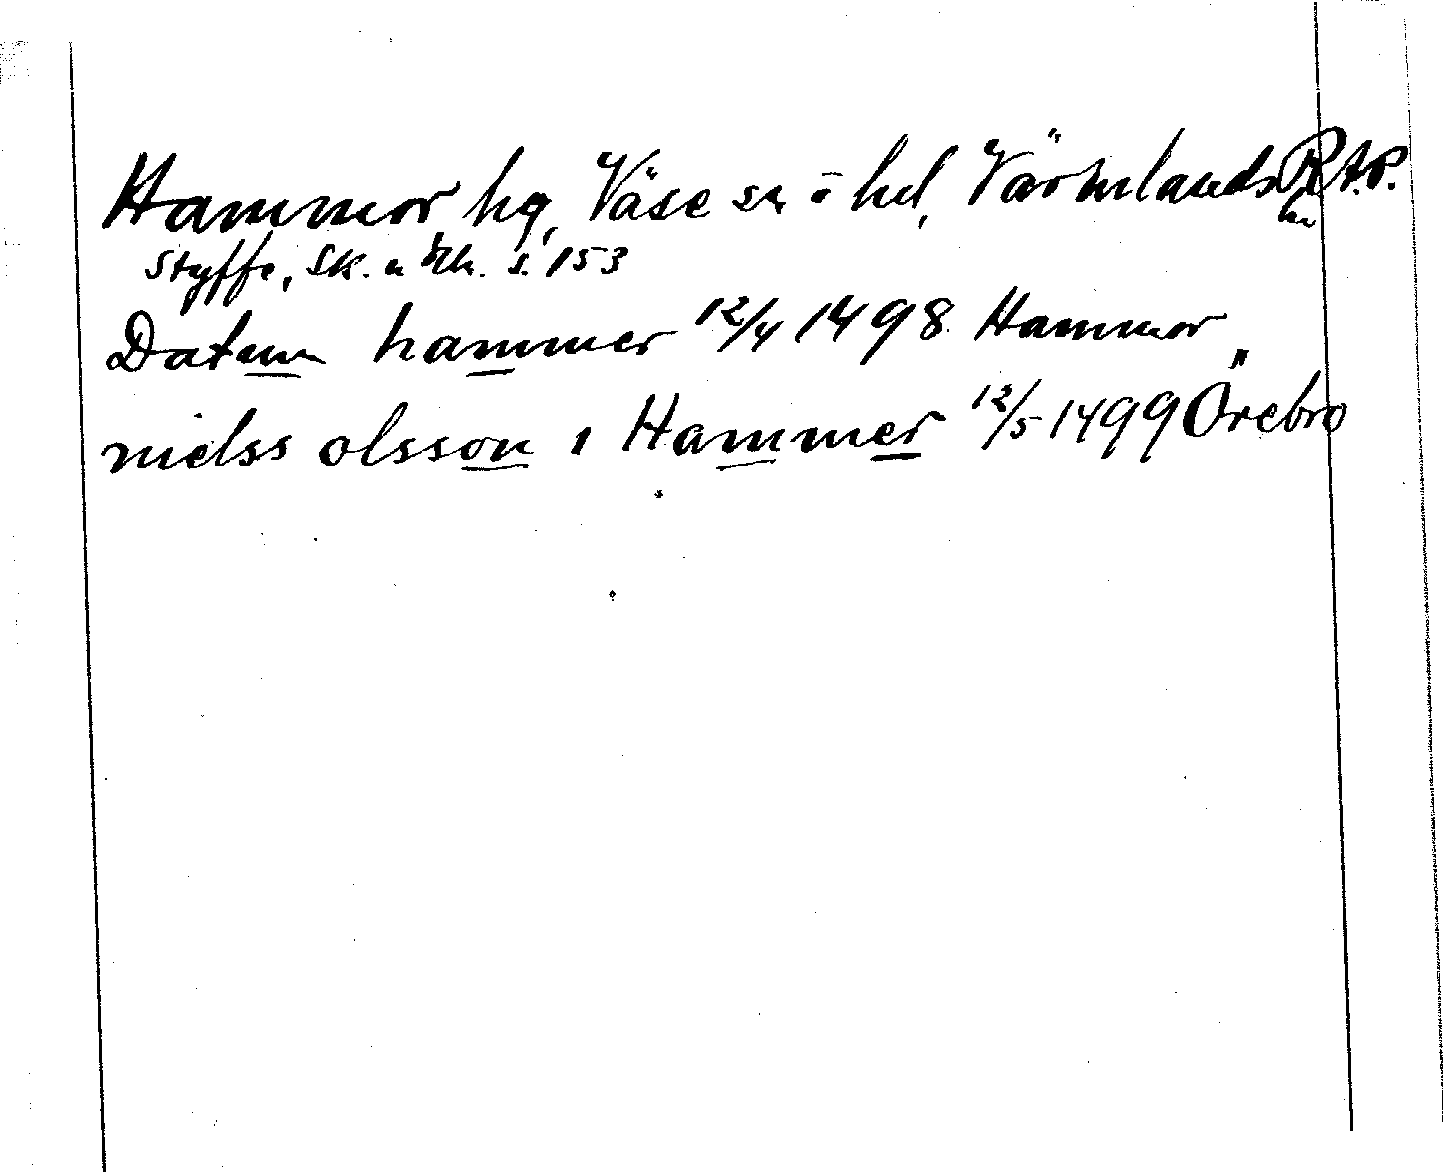 Hammar hg, Väse sn o hd, Värmlands l:n RAP.
Styffe, Sk. u Un. s. 153
Datum hammer 12/4 1498 Hammar „
nielss olsson i Hammer 12/5 1499 Örebro